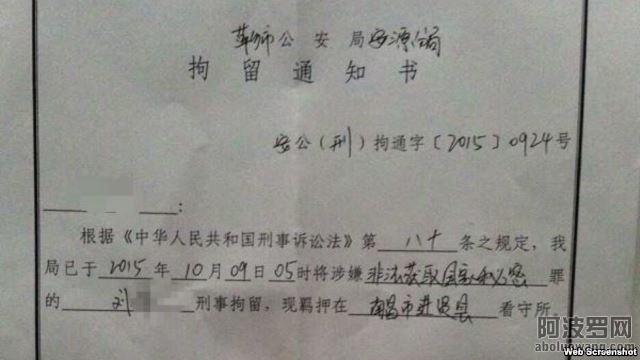 萍乡市公安局安源分局
拘留通知书
安公(刑)拘通字〔2015〕0924号
:
根据《中华人民共和国刑事诉讼法》第八十条之规定，我
局已于2015年10月09日05时将涉嫌非法获取国家秘密罪
的刘 刑事拘留，现羁押在南昌市进贤县看守所。
阿波罗网
aboluowang.com
Web Screenshot